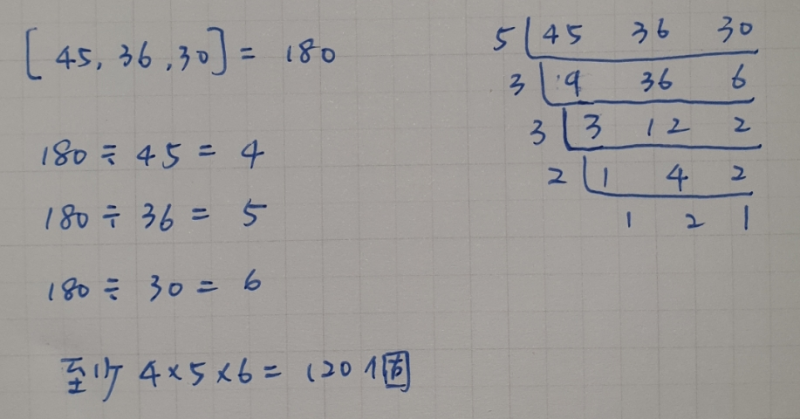 [45, 36, 30] = 180
180 ÷ 45 = 4
180 ÷ 36 = 5
180 ÷ 30 = 6
至少 4×5×6 = 120 個
5 45 36 30
3 9 36 6
3 3 12 2
2 1 4 2
1 2 1